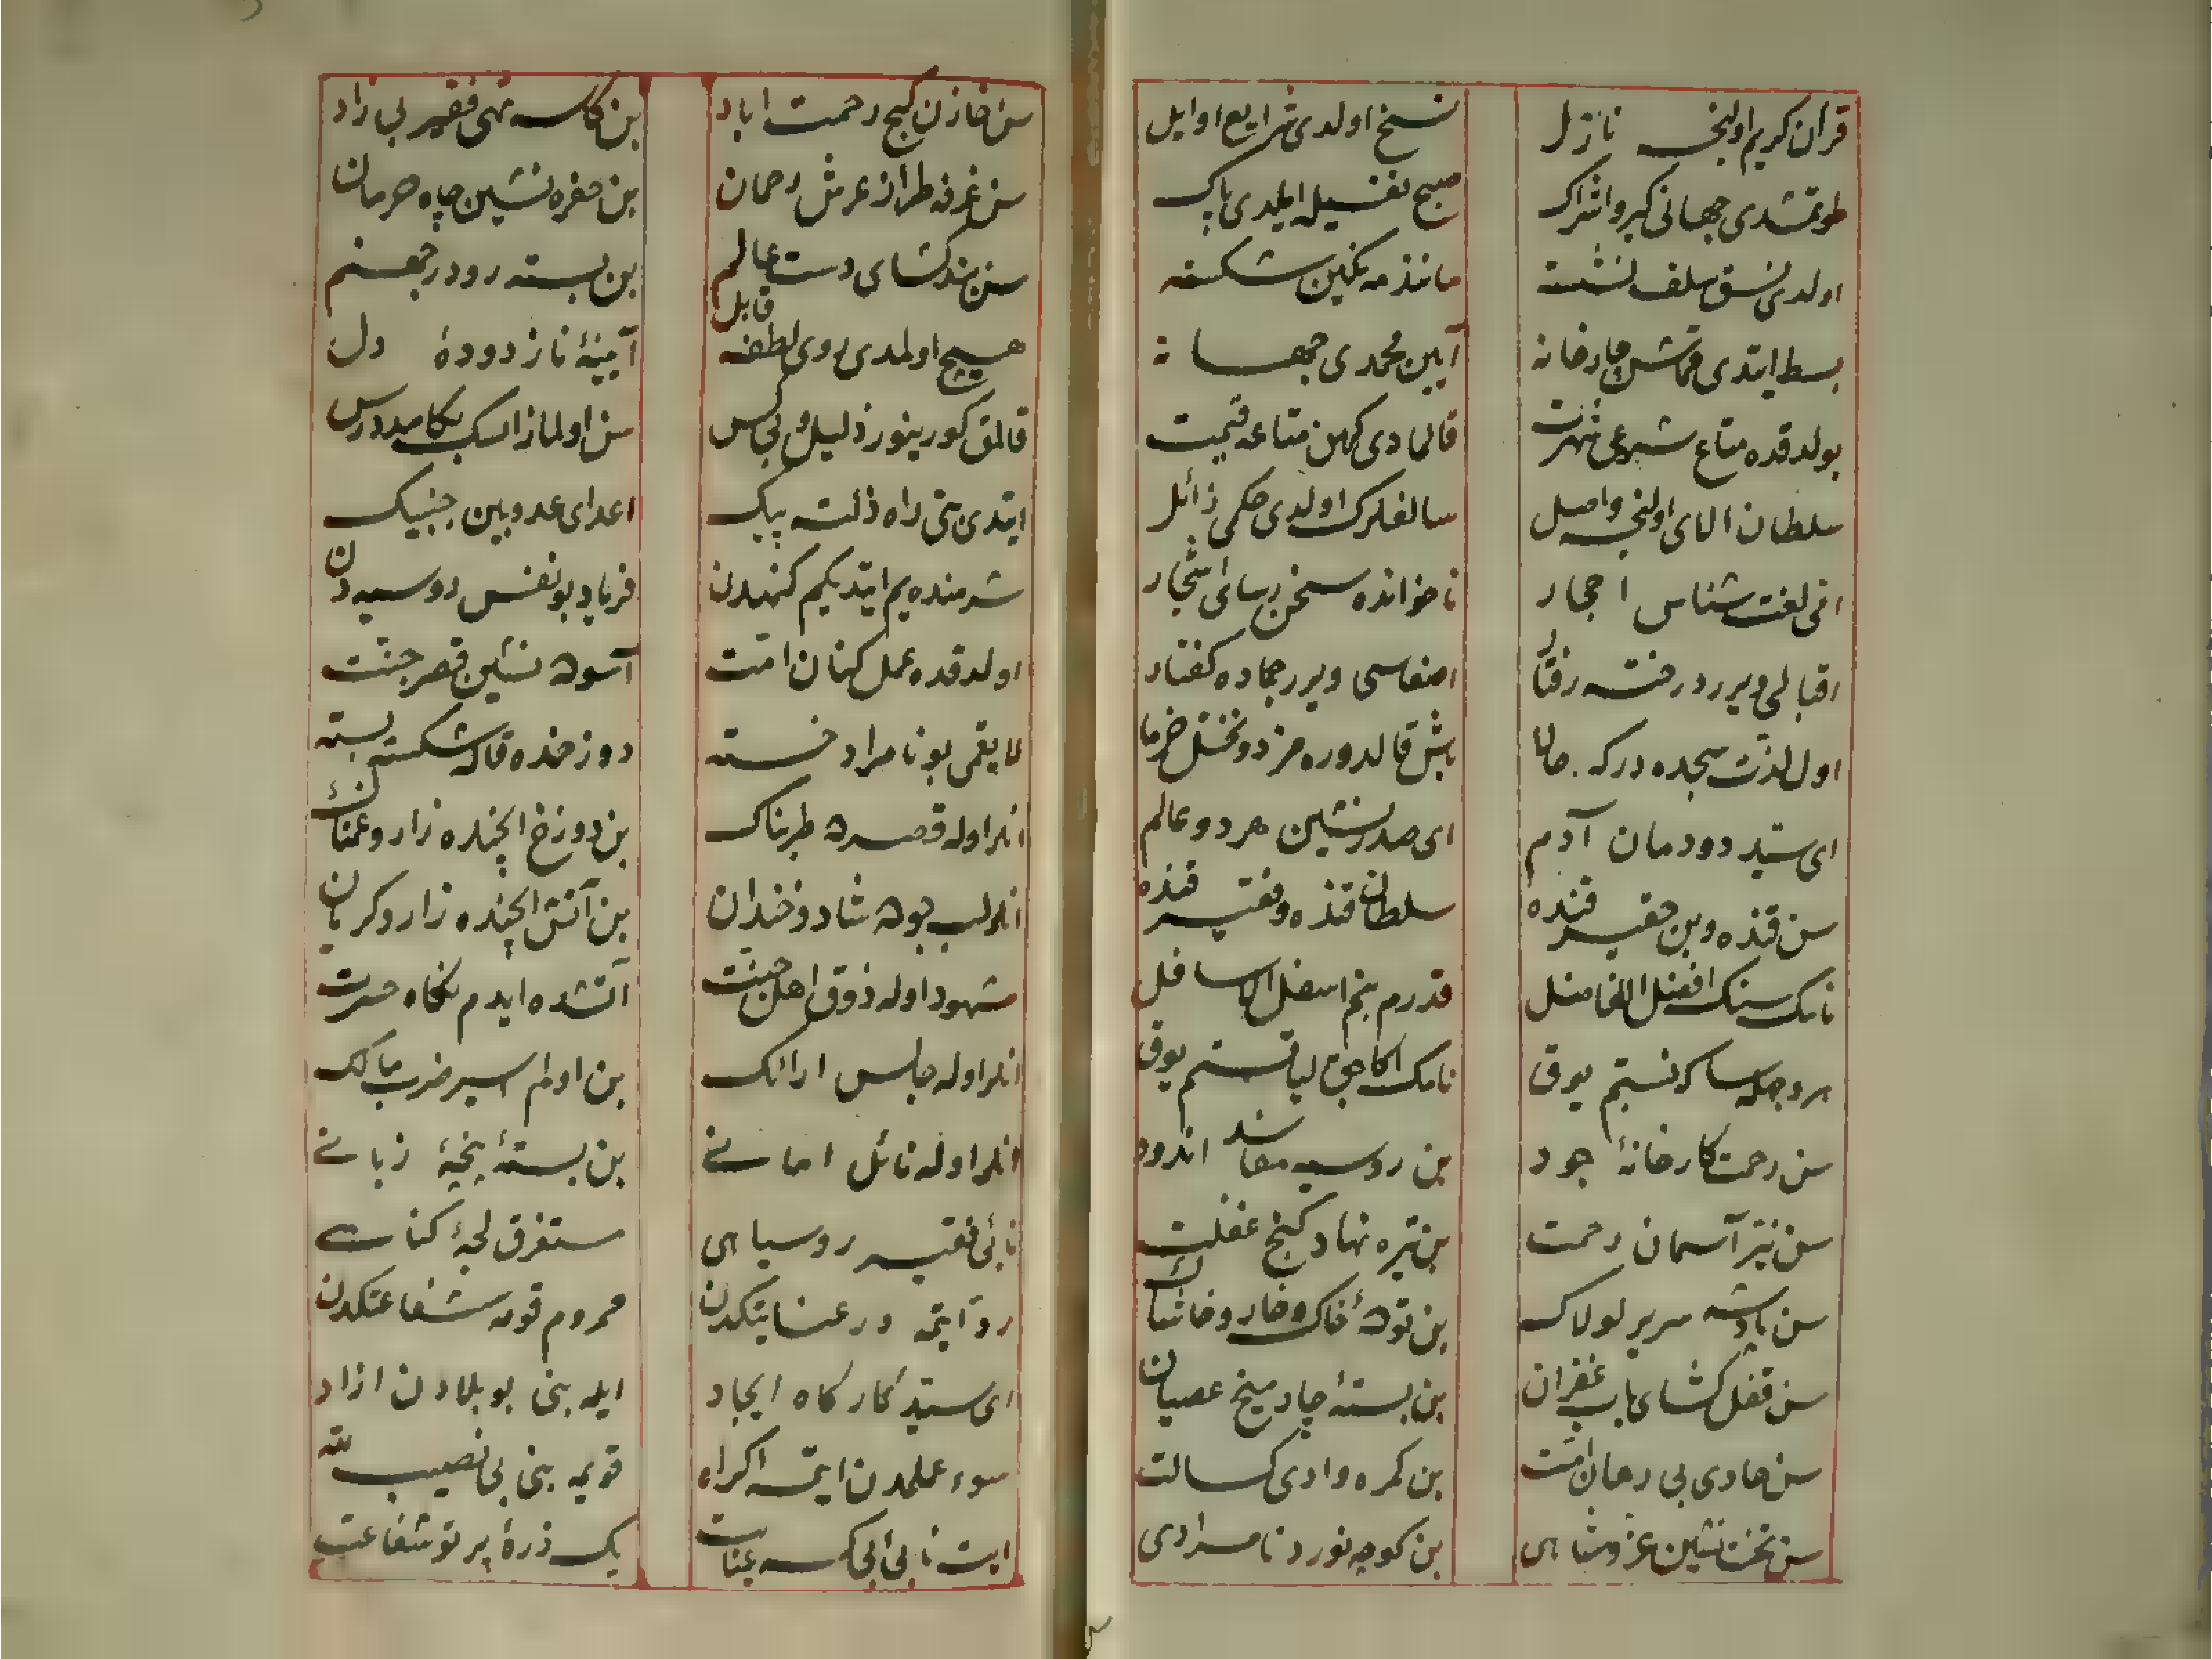 قران كريم اولنجه نازل نسخ اولدی شرایع اوایل
طوتمشدی جهانی كبر و اشراك صبح نفسیله ایلدی پاك
اولدی نسق سلف نشسته مانند مه نكین شكسته
بسط ایتدی قماش چارخانه آیین محمدی جهانه
بولدقده متاع شرعی شهرت قالمادی كهن متاعه قیمت
سلطان الای اولنجه واصل سالفلرك اولدی حكمی زائل
انی لغت شناس احجار ناخوانده سخن رسای اشجار
اقبالی ویرر درخته رفتار انفاسی ویرر جماده كفتار
اول لذت سجده دركه حالا باش قالدوره مز دو نخل خرما
ای سید دودمان آدم ای صدر نشین هر دو عالم
سن قنده و بن حقیر قنده سلطان قنده و فقیر قنده
نامك سنك افضل الافاضل قدرم بنم اسفل الاسافل
بر وجهله ساكا نسبتم یوق نامك اكاجق لیاقتم یوق
سن رحمت كارخانهٔ جود بن روسیه معاند اندود
سن نیر آسمان رحمت بن تیره نهاد كنج غفلت
سن پادشه سریر لولاك بن تودهٔ خاك و خار و خاشاك
سن قفل كشای باب غفران بن بستهٔ چار میخ عصیان
سن هادی بی رهان امت بن كمره وادی كسالت
سن تخت نشین عز و شاهی بن كوچه نورد نامرادی
سن خازن كنج رحمت اباد بن كاسه تهی فقیر بی زاد
سن غرفه طراز عرش رحمان بن حفره نشین چاه حرمان
سن بند كشای دست عالم بن بسته رو در جهنم
هیچ اولمدی روی لطفه قابل آیینهٔ نازدودهٔ دل
قالمق كورینور ذلیل و بی كس سن اولمازاسك بكا مددرس
ایتدی بنی راه ذلته پیك اعدای عدو بین جنبیك
شرمنده یم ایتدیكم كنهدن فریاد بو نفس روسیه دن
اولدقده عمل كنان امت آسوده نشین قصر جنت
لایقمی بو نامراد خسته دوزخده قاله شكسته بسته
انلر اوله قصرده طربناك بن دوزخ ایچنده زار و غمناك
انلر لب جوده شاد و خندان بن آتش ایچنده زار و كریان
مشهود اوله ذوق اهل جنت آتشده ایدم نكاه حسرت
انلر اوله جالس ارائك بن اولم اسیر ضرب مالك
انلر اوله نائل امانی بن بستهٔ پنجهٔ زبانی
نابی فقیر روسیاهی مستغرق لجهٔ كناهی
رد ایتمه در عنایتكدن محروم قومه شفاعتكدن
ای سید كاركاه ایجاد ایله بنی بو بلادن ازاد
سوء عملمدن ایتمه اكراه قویمه بنی بی نصیب لله
ایت نابی بی كسه عنایت یك ذرهٔ پرتو شفاعت